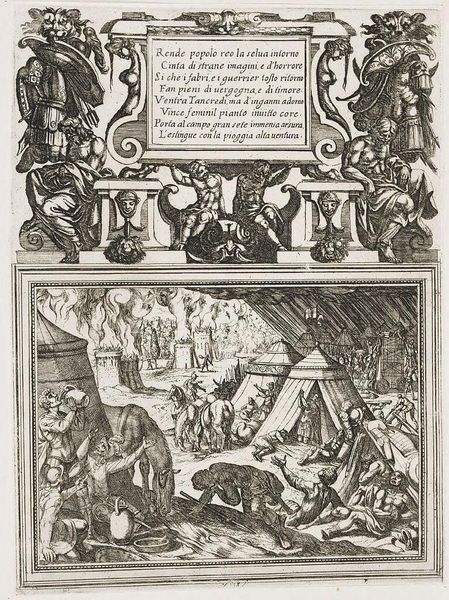 Rende popolo reo la selua intorno
Cinta di strane imagini, e d'horrore
Si che i fabri, e i guerrier tosto ritorno
Fan pieni di uergogna, e di timore.
Ventra Tancredi, ma d'inganni adorno
Vince feminil pianto inuitto core.
Porta al campo gran sete immensa arsura,
L'estingue con la pioggia alta uentura.